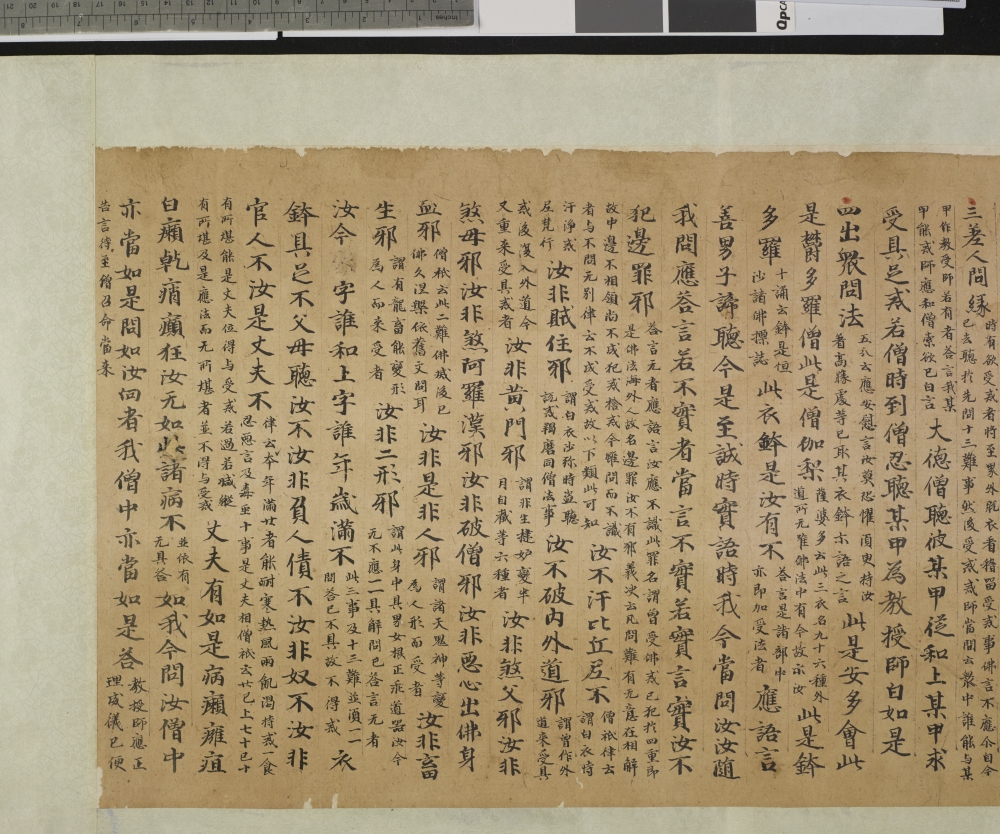 三差人問緣 時有欲受戒者時至界外脫衣看稽留受戒事佛言不應令自令
已去聽於先問十三難事然後受戒戒師當問云眾中誰能與某
甲作教授師若有者答言我某
甲能戒師應和僧索欲已白言 大德僧聽彼某甲從和上某甲求
受具足戒若僧時到僧忍聽某甲為教授師白如是
四出眾問法 五分云應安慰言汝莫恐懼須臾持汝
著高勝處等已取其衣鉢示語之言 此是安多會此
是欝多羅僧此是僧伽梨 薩婆多云此三衣名九十六種外
道所无唯佛法中有令故示汝 此是鉢
多羅 十誦云鉢是恒
沙諸佛摽誌 此衣鉢是汝有不 答言是諸部中
亦即加受法者 應語言
善男子諦聽今是至誠時實語時我今當問汝汝隨
我問應荅言若不實者當言不實若實言實汝不
犯邊罪邪 答言无者應語言汝應不識此罪名謂曾受佛戒已犯於四重即
是佛法海外人故名邊罪汝不有邪義決云凡問難有无意在相解
故中邊不相領尚不成犯戒捨戒今難問而不識
者与不問无別律云不成受戒故以下類此可知 汝不汙比丘尼不 僧祇律云
謂白衣時
汙淨戒
尼梵行 汝非賊住邪 謂白衣沙弥時盜聽
說戒羯磨同僧法事 汝不破內外道邪 謂曾作外
道來受具
戒後復入外道今
又重来受具戒者 汝非黄門邪 謂非生揵妒變半
月自截等六種者 汝非煞父邪汝非
煞母邪汝非煞阿羅漢邪汝非破僧邪汝非惡心出佛身
血邪 僧祇云此二難佛滅後已
佛久涅槃依舊文問耳 汝非是非人邪 謂諸天鬼神等變
為人形而受者 汝非畜
生邪 謂有龍畜能變形
為人而来受者 汝非二形邪 謂此身中具男女根正乖道器汝今
无不應一一具解問已答言无者
汝今 字誰和上字誰年歲滿不 此三事及十三難並須一一
問答已不具故不得戒 衣
鉢具足不父母聽汝不汝非負人債不汝非奴不汝非
官人不汝是丈夫不 律云卆年滿廿者能耐寒熱風雨飢渴持戒一食
忍惡言及毒虫十事是丈夫相僧祇云廿已上七十已卞
有所堪能是丈夫位得与受戒若過若減縱
有所堪及是應法而无所堪者並不得与受戒 丈夫有如是病癩癰疽
白癩乾痟癲狂汝无如此諸病不 並依有
无具荅 如我今問汝僧中
亦當如是問如汝向者我僧中亦當如是荅 教授師應正
理威儀已便
告言待至僧召命當来